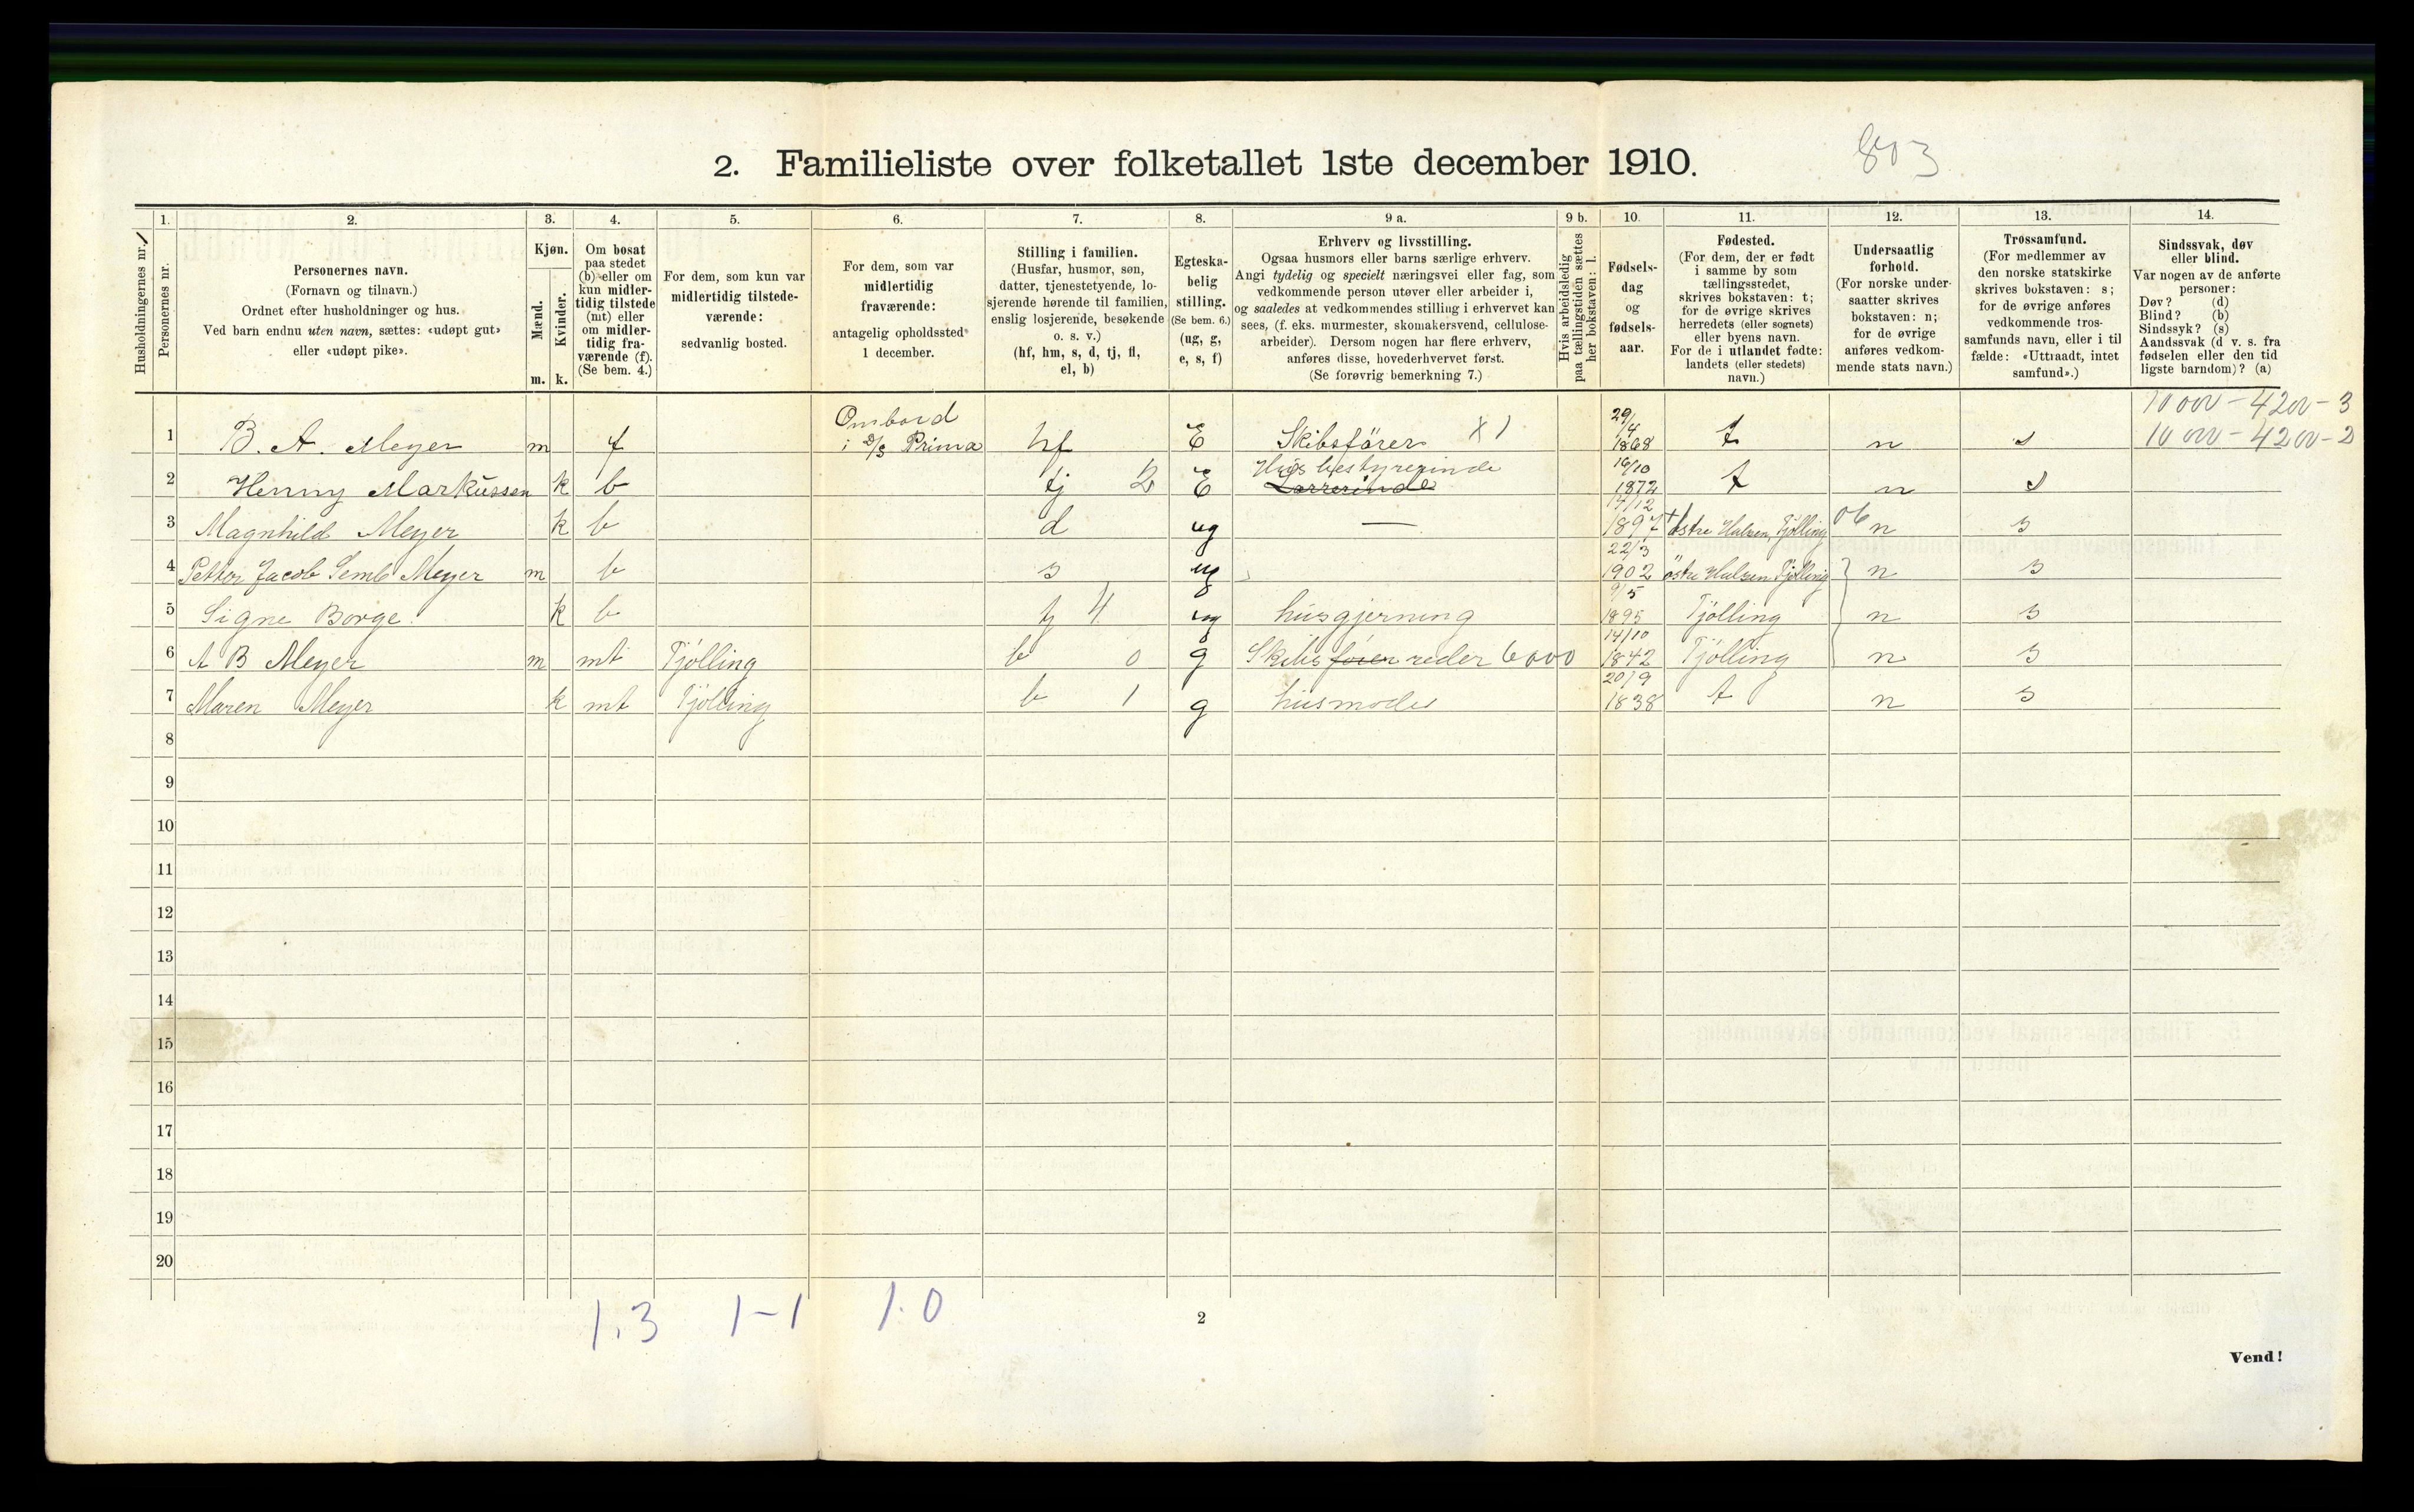 2. Familieliste over folketallet 1ste december 1910.
803
1. 2. 3. 4. 5. 6. 7. 8. 9 a. 9 b. 10. 11. 12. 13. 14.
Husholdningernes nr.
Personernes nr.
Personernes navn.
(Fornavn og tilnavn.)
Ordnet efter husholdninger og hus.
Ved barn endnu uten navn, sættes: «udøpt gut»
eller «udøpt pike».
Kjøn.
Mænd.
Kvinder.
m. k.
Om bosat
paa stedet
(b) eller om
kun midler-
tidig tilstede
(mt) eller
om midler-
tidig fra-
værende (f).
(Se bem. 4.)
For dem, som kun var
midlertidig tilstede-
værende:
sedvanlig bosted.
For dem, som var
midlertidig
fraværende:
antagelig opholdssted
1 december.
Stilling i familien.
(Husfar, husmor, søn,
datter, tjenestetyende, lo-
sjerende hørende til familien,
enslig losjerende, besøkende
o. s. v.)
(hf, hm, s, d, tj, fl,
el, b)
Egteska-
belig
stilling.
(Se bem. 6.)
(ug, g,
e, s, f)
Erhverv og livsstilling.
Ogsaa husmors eller barns særlige erhverv.
Angi tydelig og specielt næringsvei eller fag, som
vedkommende person utøver eller arbeider i,
og saaledes at vedkommendes stilling i erhvervet kan
sees, (f. eks. murmester, skomakersvend, cellulose-
arbeider). Dersom nogen har flere erhverv,
anføres disse, hovederhvervet først.
(Se forøvrig bemerkning 7.)
Hvis arbeidsledig
paa tællingstiden sættes
her bokstaven: l.
Fødsels-
dag
og
fødsels-
aar.
Fødested.
(For dem, der er født
i samme by som
tællingsstedet,
skrives bokstaven: t;
for de øvrige skrives
herredets (eller sognets)
eller byens navn.
For de i utlandet fødte:
landets (eller stedets)
navn.)
Undersaatlig
forhold.
(For norske under-
saatter skrives
bokstaven: n;
for de øvrige
anføres vedkom-
mende stats navn.)
Trossamfund.
(For medlemmer av
den norske statskirke
skrives bokstaven: s;
for de øvrige anføres
vedkommende tros-
samfunds navn, eller i til
fælde: «Uttraadt, intet
samfund».)
Sindssvak, døv
eller blind.
Var nogen av de anførte
personer:
Døv? (d)
Blind? (b)
Sindssyk? (s)
Aandssvak (d v. s. fra
fødselen eller den tid
ligste barndom)? (a)
10 000 - 4200 - 3
1 B. A. Meyer m f Ombord i D/S Prima hf E Skibsfører X 1 29/4 1868 t n s 10 000 - 4200 - 2
2 Henny Markussen k b tj 2 E Husbestyrerinde 16/10 1872 t n s
3 Magnhild Meyer k b d ug — 17/12 1897 Østre Halsen, Tjølling 06 n s
4 Petter Jacob Semb Meyer m b s ug 22/3 1902 østre Halsen Tjølling n s
5 Signe Borge k b tj 4 ug husgjerning 9/5 1895 Tjølling n s
6 A B Meyer m mt Tjølling b 0 g Skibsfører reder 6000 14/10 1842 Tjølling n s
7 Maren Meyer k mt Tjølling b 1 g husmoder 20/9 1838 t n s
8
9
10
11
12
13
14
15
16
17
18
19
20
1.3 1-1 1.0
2
Vend!